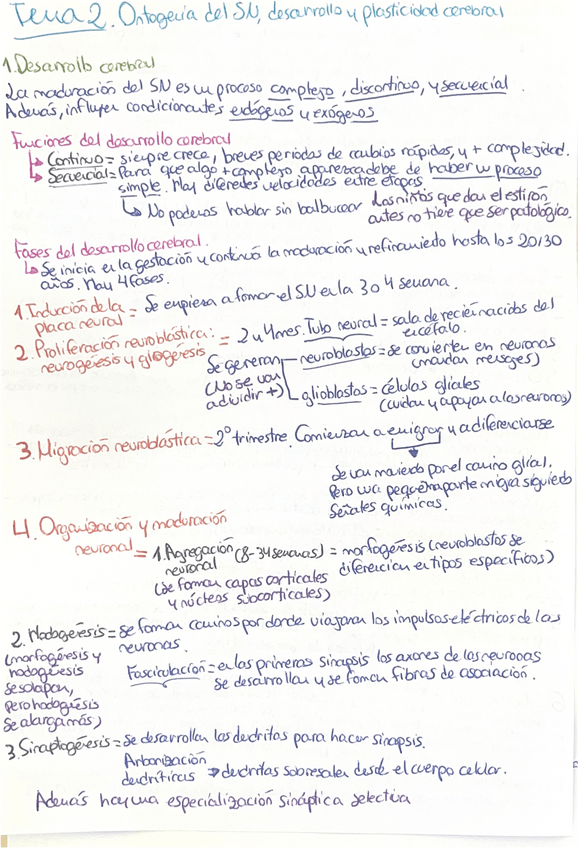 Tema 2. Ontogenia del SN, desarrollo y plasticidad cerebral
1. Desarrollo cerebral
La maduración del SN es un proceso complejo, discontinuo, y secuencial.
Además, influyen condicionantes endógenos y exógenos
Funciones del desarrollo cerebral
↳ Continuo = siempre crece, breves periodos de cambios rápidos, y + complejidad.
↳ Secuencial = Para que algo + complejo aparezca debe de haber un proceso
simple. Hay diferentes velocidades entre etapas.
↳ No podemos hablar sin balbucear
Los niños que dan el estirón
antes no tiene que ser patológico.
Fases del desarrollo cerebral.
↳ Se inicia en la gestación y continúa la maduración y refinamiento hasta los 20/30
años. Hay 4 fases.
1. Inducción de la placa neural = Se empieza a formar el SN en la 3 o 4 semana.
2. Proliferación neuroblástica: neurogénesis y gliogénesis = 2 u 4 mes. Tubo neural = sala de recién nacidos del
encéfalo.
Se generan (No se van a dividir +)
neuroblastos = se convierten en neuronas
(mandan mensajes)
glioblastos = células gliales
(cuidan y apoyan a las neuronas)
3. Migración neuroblástica = 2º trimestre. Comienzan a emigrar y a diferenciarse
Se van moviendo por el camino glial.
Pero una pequeña parte migra siguiendo
señales químicas.
4. Organización y maduración
neuronal = 1. Agregación neuronal (8-34 semanas) = morfogénesis (neuroblastos se
diferencian en tipos específicos)
(se forman capas corticales
y núcleos subcorticales)
2. Hodogénesis = se forman caminos por donde viajaran los impulsos eléctricos de las
neuronas.
(morfogénesis y
hodogénesis
se solapan,
pero hodogénesis
se alarga más)
Fasciculación = en las primeras sinapsis los axones de las neuronas
se desarrollan y se forman fibras de asociación.
3. Sinaptogénesis = se desarrollan las dendritas para hacer sinapsis.
Arborización
dendríticas → dendritas sobresalen desde el cuerpo celular.
Además hay una especialización sináptica selectiva